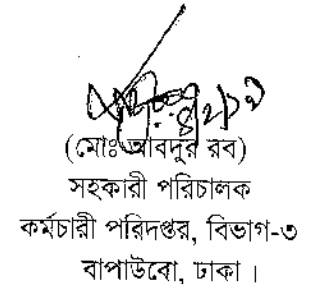 (মোঃ আবদুর রব)
সহকারী পরিচালক
কর্মচারী পরিদপ্তর, বিভাগ-৩
বাপাউবো, ঢাকা ।